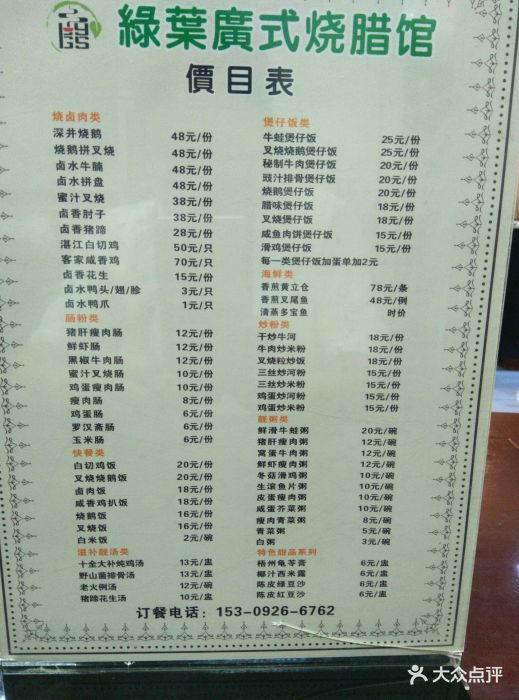 綠葉廣式烧腊馆
價目表
烧卤肉类
深井烧鹅 48元/份
烧鹅拼叉烧 48元/份
卤水牛腩 48元/份
卤水拼盘 48元/份
蜜汁叉烧 38元/份
卤香肘子 38元/份
卤香猪蹄 28元/份
湛江白切鸡 50元/只
客家咸香鸡 70元/只
卤香花生 15元/份
卤水鸭头/翅/胗 3元/只
卤水鸭爪 1元/只
肠粉类
猪肝瘦肉肠 12元/份
鲜虾肠 12元/份
黑椒牛肉肠 12元/份
蜜汁叉烧肠 10元/份
鸡蛋瘦肉肠 10元/份
瘦肉肠 8元/份
鸡蛋肠 6元/份
罗汉斋肠 6元/份
玉米肠 6元/份
快餐类
白切鸡饭 20元/份
叉烧烧鹅饭 20元/份
卤肉饭 18元/份
咸香鸡扒饭 18元/份
烧鹅饭 16元/份
叉烧饭 16元/份
白米饭 2元/碗
滋补靓汤类
十全大补炖鸡汤 13元/盅
野山菌排骨汤 13元/盅
老火例汤 12元/碗
猪蹄花生汤 10元/盅
煲仔饭类
牛蛙煲仔饭 25元/份
叉烧烧鹅煲仔饭 25元/份
秘制牛肉煲仔饭 20元/份
豉汁排骨煲仔饭 20元/份
烧鹅煲仔饭 20元/份
腊味煲仔饭 18元/份
叉烧煲仔饭 18元/份
咸鱼肉饼煲仔饭 15元/份
滑鸡煲仔饭 15元/份
每一类煲仔饭加蛋单加2元
海鲜类
香煎黄立仓 78元/条
香煎叉尾鱼 48元/例
清蒸多宝鱼 时价
炒粉类
干炒牛河 18元/份
牛肉炒米粉 18元/份
叉烧粒炒饭 18元/份
三丝炒河粉 15元/份
三丝炒米粉 15元/份
鸡蛋炒河粉 15元/份
鸡蛋炒米粉 15元/份
靓粥类
鲜滑牛蛙粥 20元/碗
猪肝瘦肉粥 12元/碗
窝蛋牛肉粥 12元/碗
鲜虾瘦肉粥 12元/碗
冬菇滑鸡粥 10元/碗
生滚鱼片粥 10元/碗
皮蛋瘦肉粥 10元/碗
咸蛋芥菜粥 10元/碗
瘦肉青菜粥 8元/碗
青菜粥 5元/碗
白粥 3元/碗
特色甜品系列
梧州龟苓膏 6元/盅
椰汁西米露 6元/盅
陈皮绿豆沙 6元/盅
陈皮红豆沙 6元/盅
订餐电话：153-0926-6762
大众点评